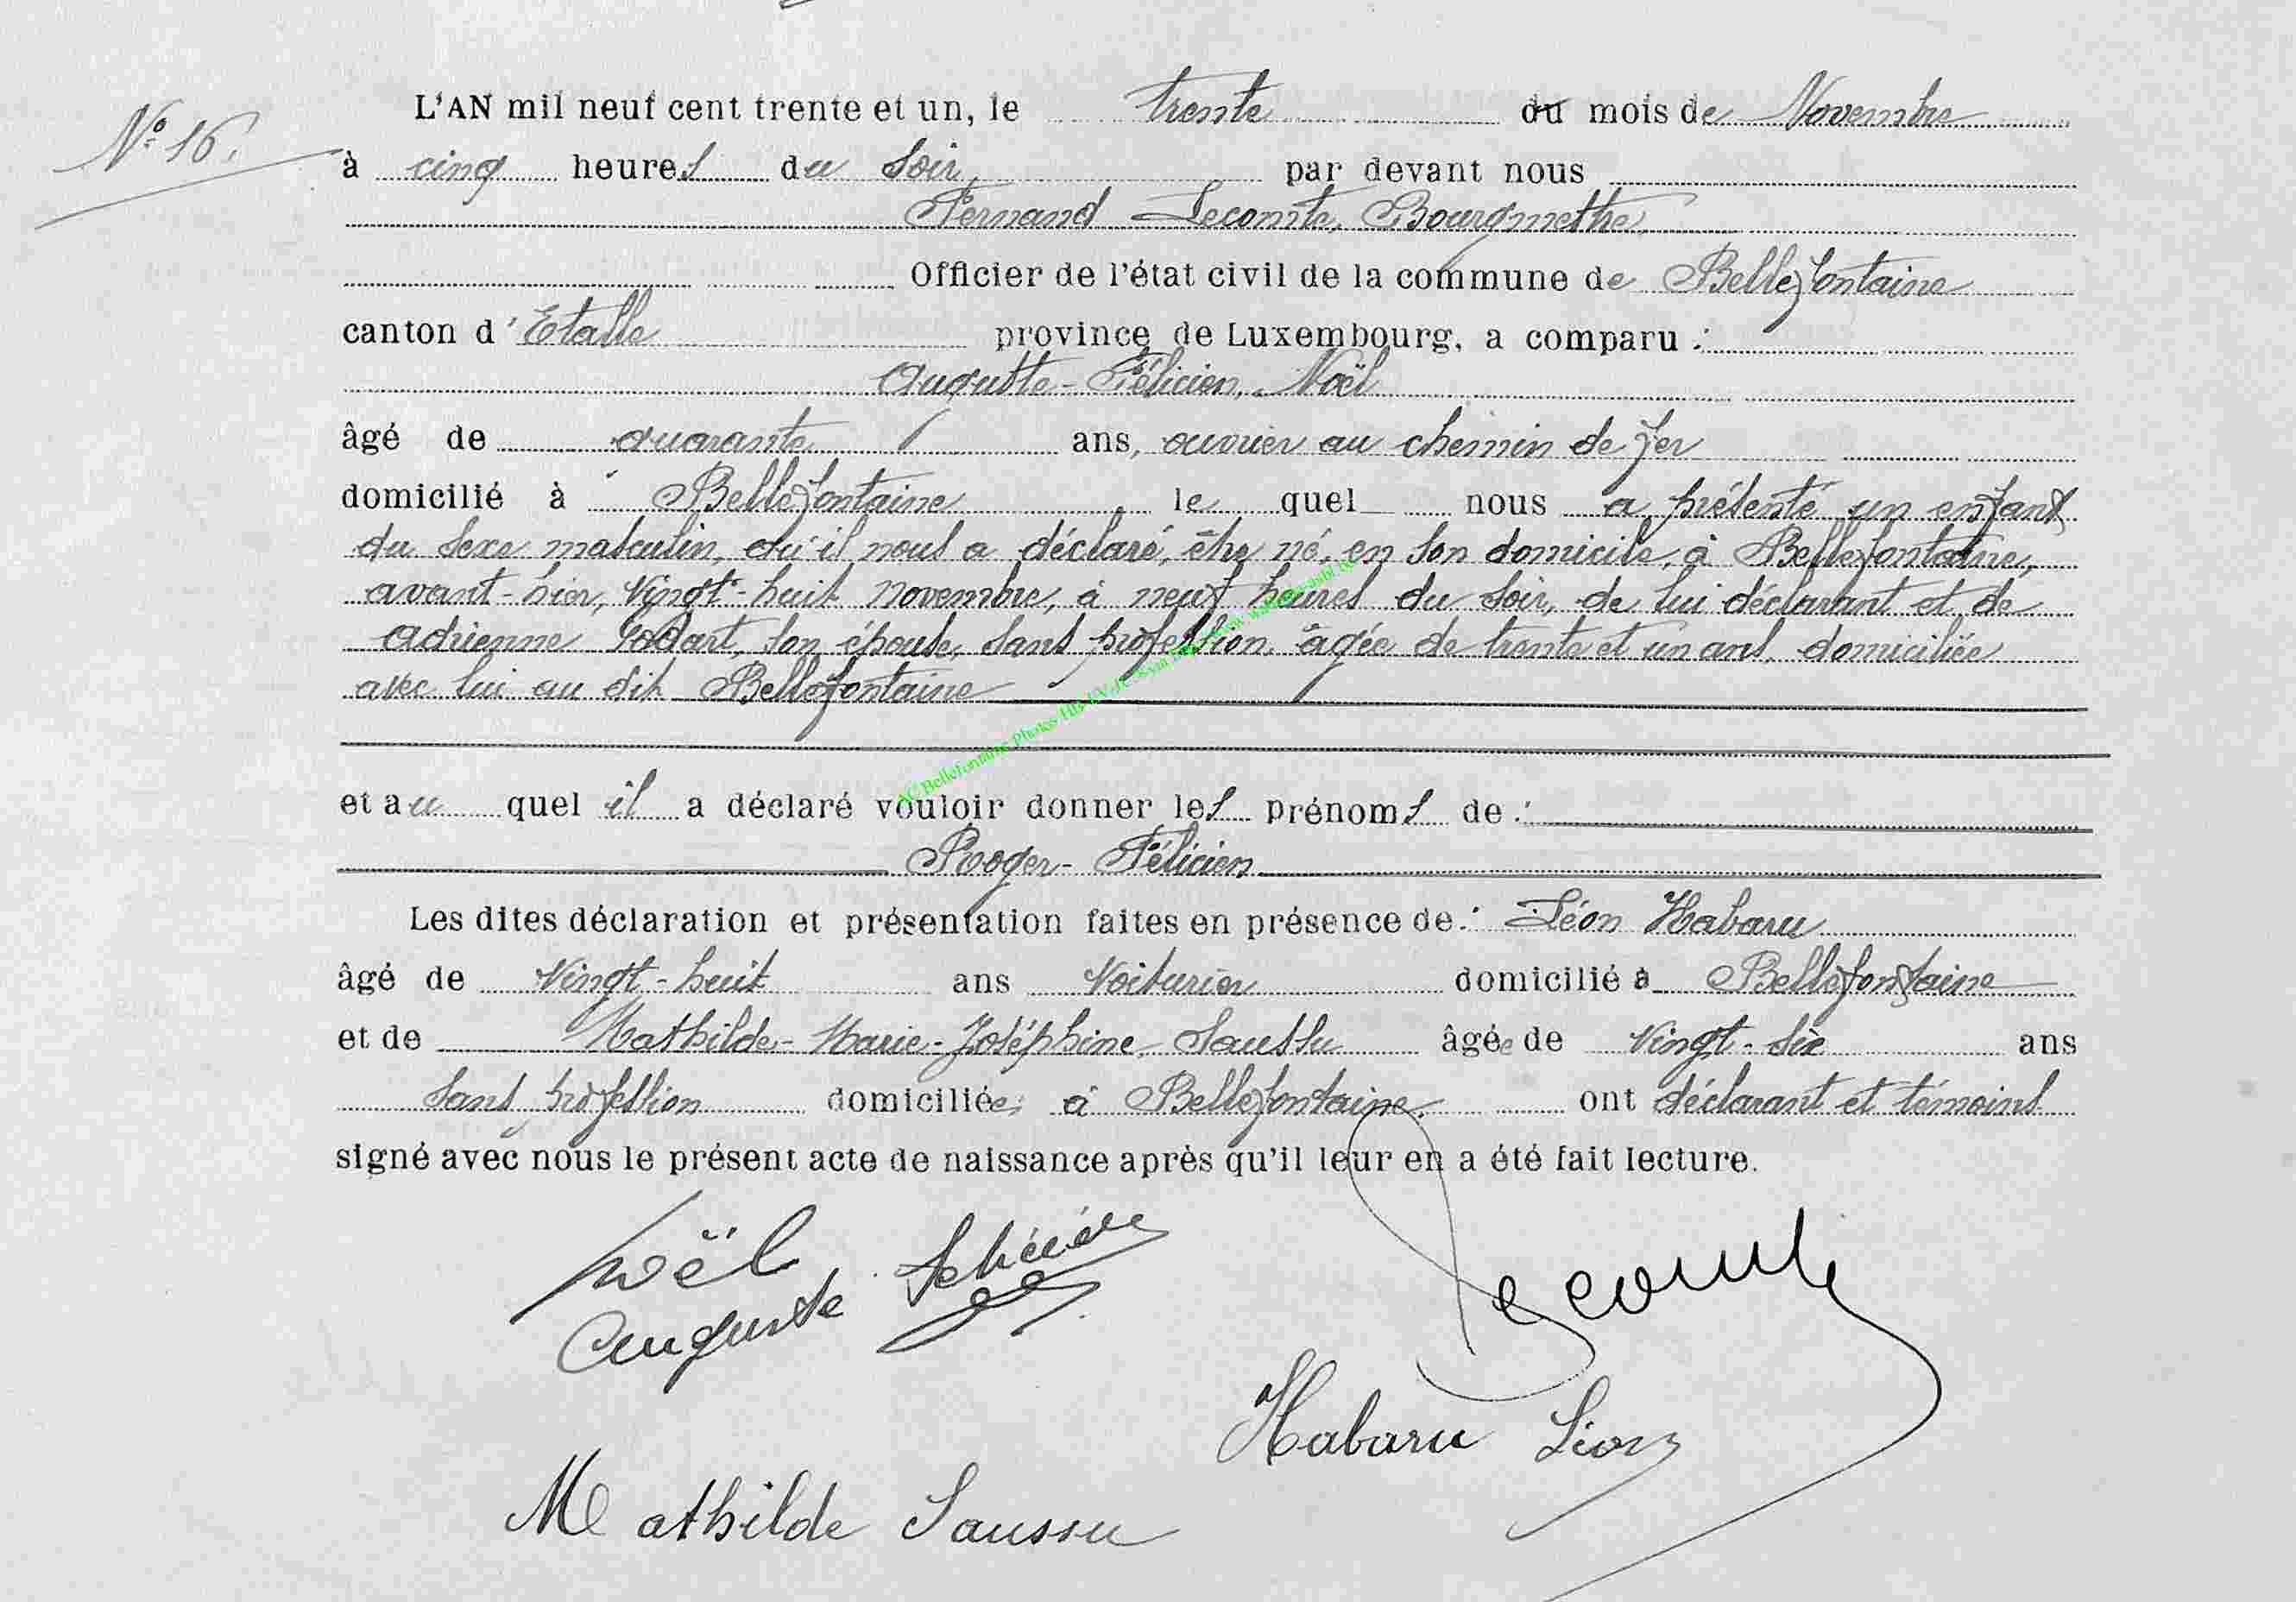 N° 16.
L'AN mil neuf cent trente et un, le trente du mois de Novembre
à cinq heures du soir, par devant nous
Fernand Lecomte, Bourgmestre,
Officier de l'état civil de la commune de Bellefontaine
canton d'Etalle province de Luxembourg, a comparu :
Auguste-Félicien, Noël
âgé de quarante ans, ouvrier au chemin de fer
domicilié à Bellefontaine le quel nous a présenté un enfant
du sexe masculin, qu'il nous a déclaré, être né, en son domicile, à Bellefontaine,
avant-hier, vingt-huit novembre, à neuf heures du soir, de lui déclarant et de
Adrienne Godart, son épouse, sans profession, âgée de trente et un ans, domiciliée
avec lui au dit Bellefontaine
et au quel il a déclaré vouloir donner les prénoms de :
Roger-Félicien
Les dites déclaration et présentation faites en présence de : Léon Habaru
âgé de vingt-huit ans Voiturier domicilié à Bellefontaine
et de Mathilde-Marie-Joséphine, Saussu âgée de vingt-six ans
sans profession domiciliée, à Bellefontaine, ont déclarant et témoins
signé avec nous le présent acte de naissance après qu'il leur en a été fait lecture.
Noël Félicien
Auguste
Lecomte
Habaru Léon
Mathilde Saussu
AC Bellefontaine Photos